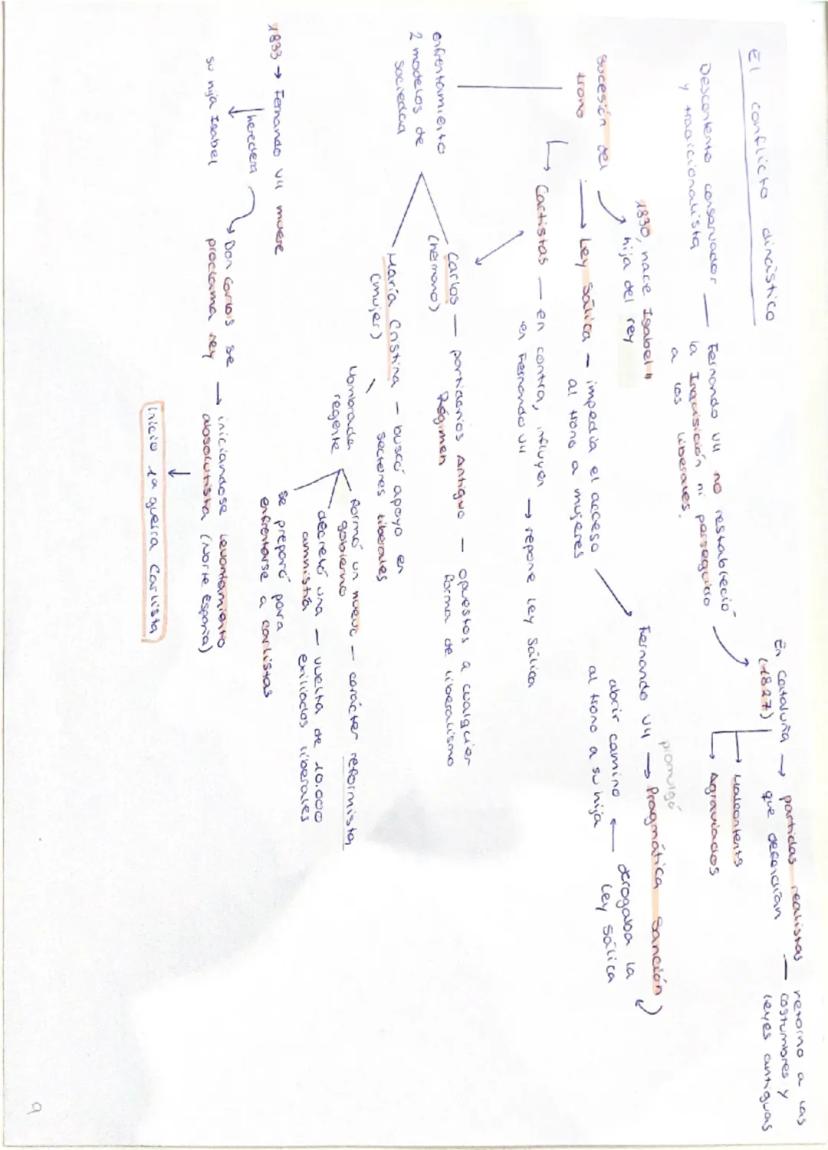 El conflicto dinástico
Descontento conservador — Fernando VII no restableció
y tradicionalista
la Inquisición ni persiguió
a los liberales.
En Cataluña → partidas realistas
(1827)
que defendían — retorno a las
costumbres y
leyes antiguas
→ Malcontents
→ Agraviados
1830, nace Isabel II
hija del rey
Sucesión del
trono
→ Ley Sálica – impedía el acceso
al trono a mujeres
Fernando VII → Pragmática Sanción
promulgó
derogaba la
Ley Sálica
abrir camino ←
al trono a su hija
Carlistas — en contra, influyen → repone Ley Sálica
en Fernando VII
enfrentamiento
2 modelos de
sociedad
Carlos — partidarios Antiguo — opuestos a cualquier
(hermano)
Régimen
forma de liberalismo
María Cristina – buscó apoyo en
(mujer)
sectores liberales
Nombrada
regente
formó un nuevo — carácter reformista
gobierno
decretó una — vuelta de 10.000
amnistía
exiliados liberales
se preparó para
enfrentarse a carlistas
1833 → Fernando VII muere
heredera
su hija Isabel
Don Carlos se
proclama rey
→ iniciándose levantamiento
absolutista (Norte España)
Inicio 1ª guerra Carlista
9